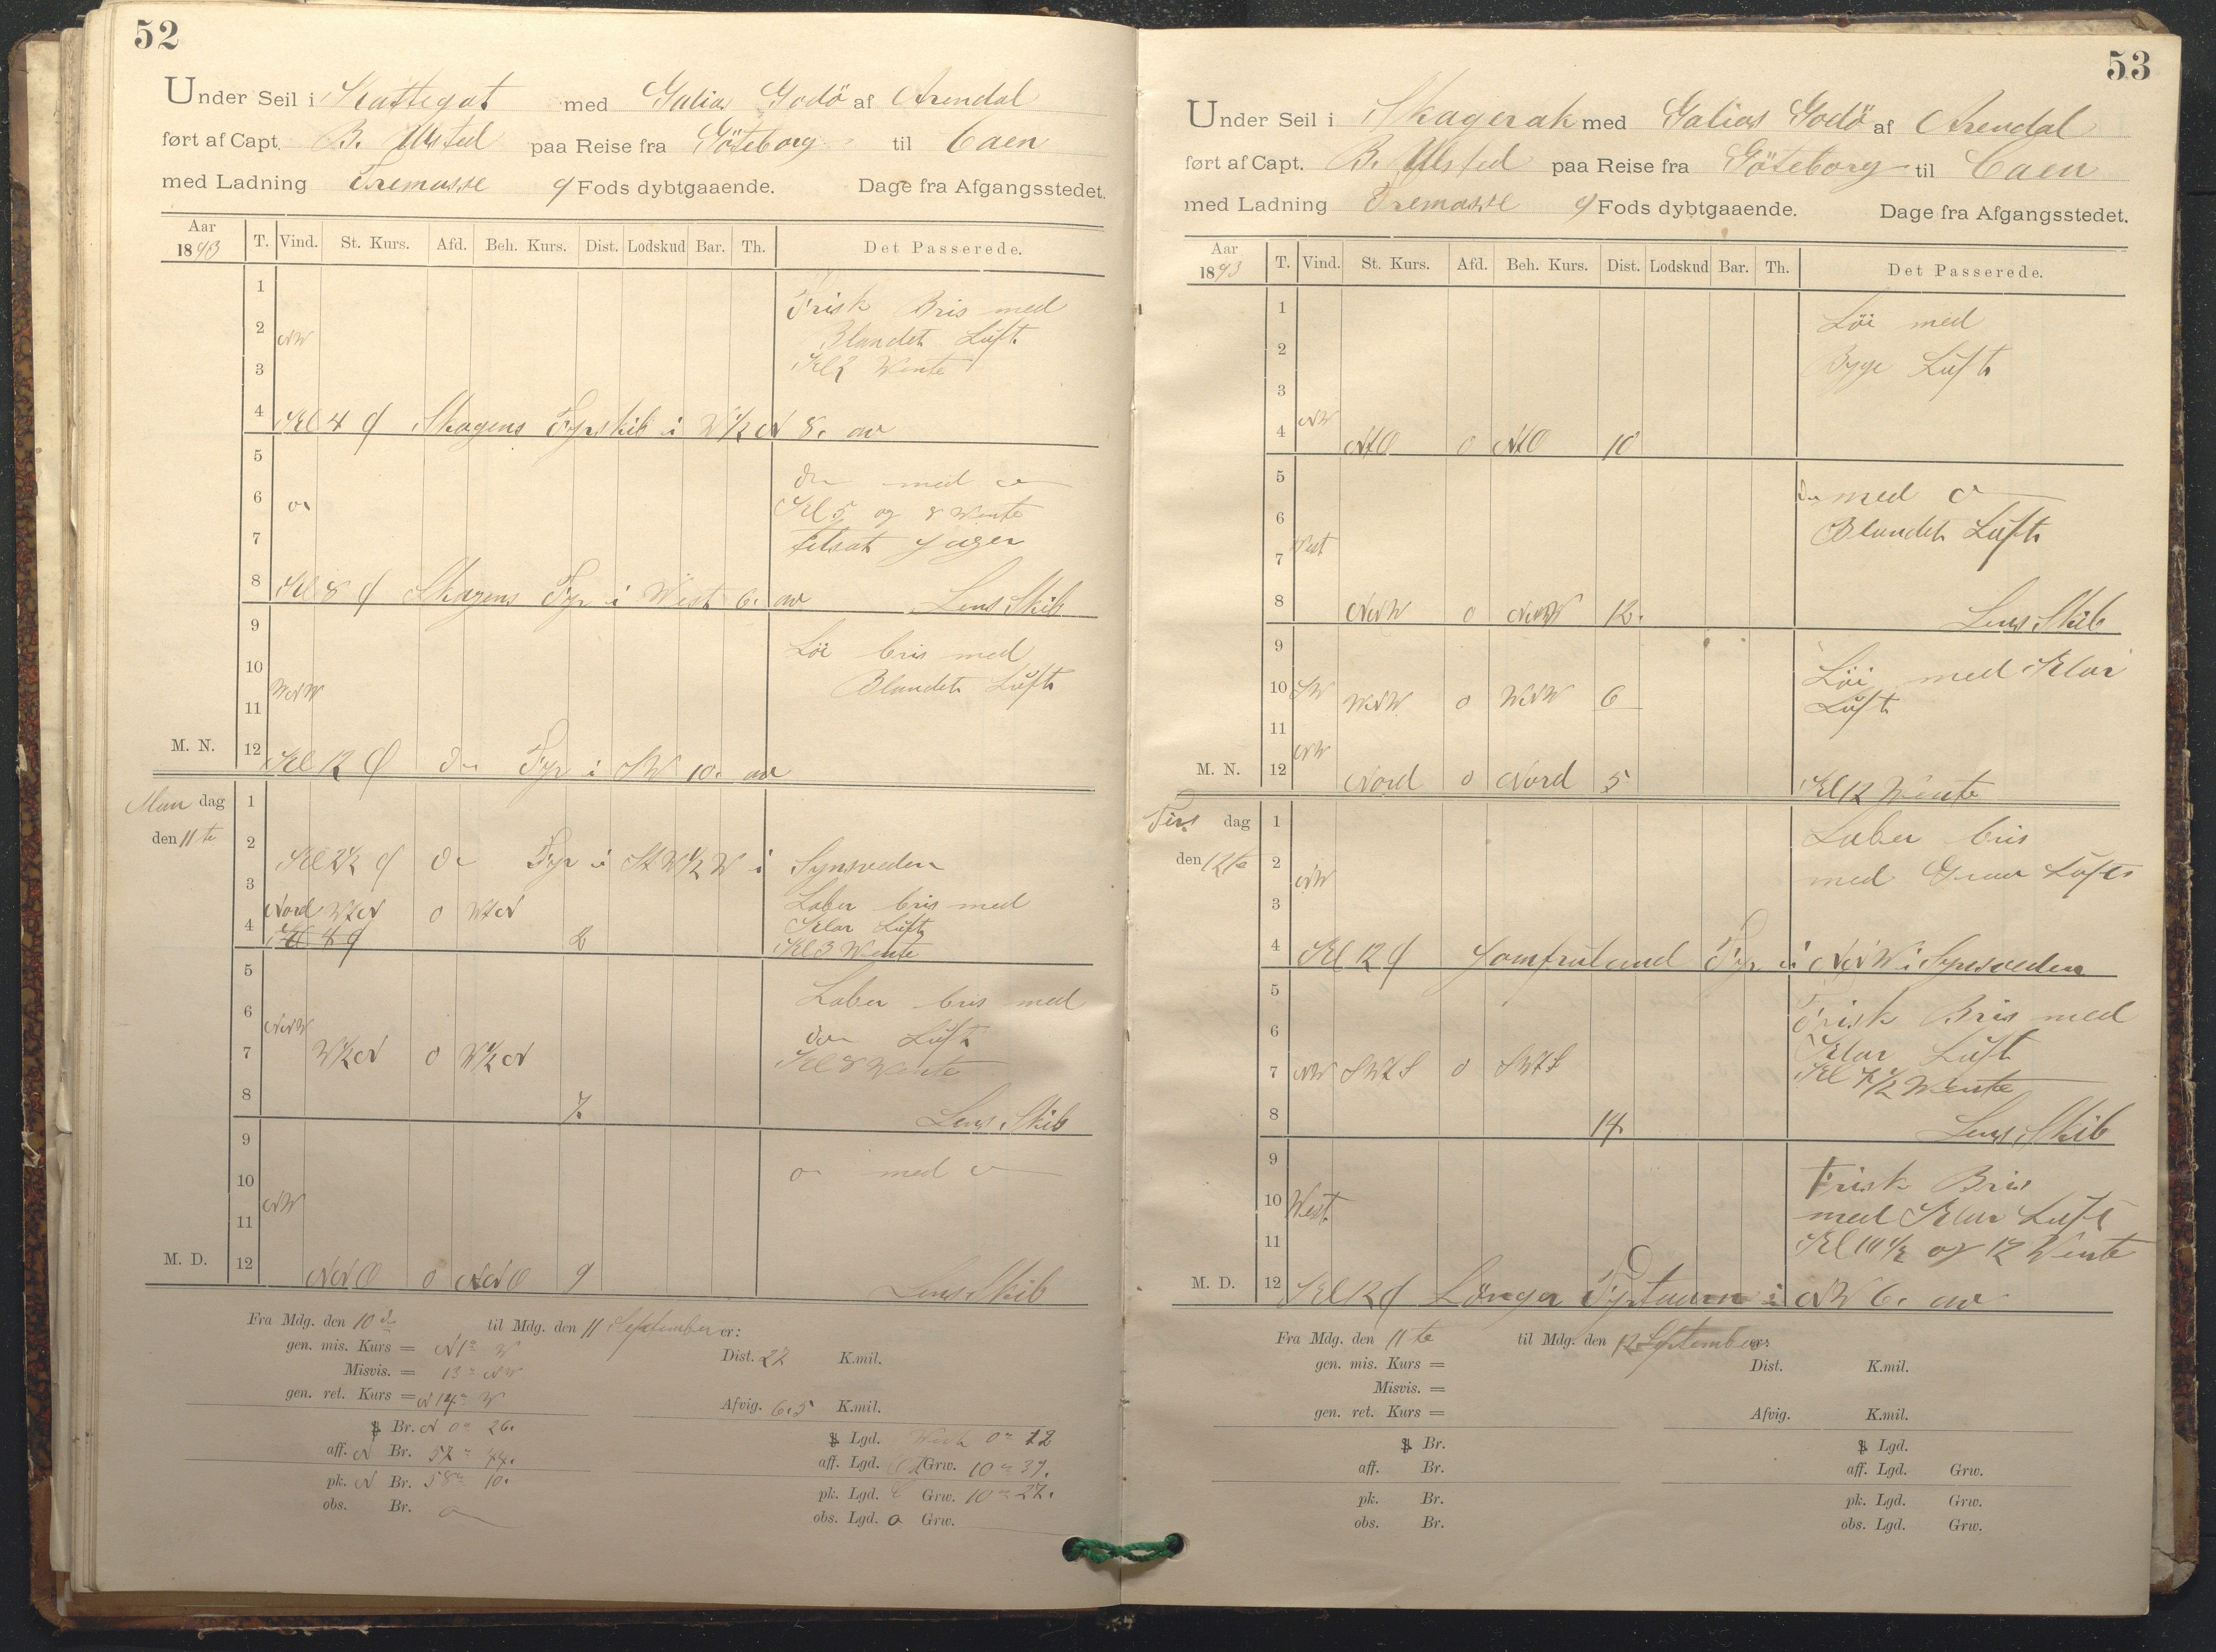 52
Under Seil i Kattegat med Galias Godö af Arendal
ført af Capt. B. Ulsted paa Reise fra Göteborg til Caen
med Ladning Tremasse 9 Fods dybtgaaende. Dage fra Afgangsstedet.
Aar 1893 T. Vind. St. Kurs. Afd. Beh. Kurs. Dist. Lodskud Bar. Th. Det Passerede.
1 Frisk Bris med
2 NW Blandet Luft
3 Kl 2 Wente
4 Kl 4 Skagens Fyrskib i W½N 8. av
5
6 med
Kl 5 og 8 Wente
7 tilsat Jager
8 Kl 8 Skagens Fyr i West 6. av Lens Skib
9
Löi bris med
10 WNW Blandet Luft
11
M. N. 12 Kl 12 Fyr i SW 10. av
Man dag 1
den 11te 2 Kl 2½ Fyr i StW½W i Synsveden
3 Nord WtN 0 WtN Laber bris med
4 Kl 4 2 Klar Luft
Kl 3 Wente
5
6 NNW Laber bris med
Luft
7 W½N 0 W½N Kl 8 Wente
8 7. Lens Skib
9
10 NW med
11
M. D. 12 NNO 0 NNO 9 Lens Skib
Fra Mdg. den 10 til Mdg. den 11 September er:
gen. mis. Kurs = N 1° W Dist. 27 K.mil.
Misvis. = 13° NW
gen. ret. Kurs = N 14° W Afvig. 6.5 K.mil.
Br. N 0° 26. Lgd. West 0° 12
aff. N Br. 57° 44. aff. Lgd. Grw. 10° 37.
pk. N Br. 58° 10. pk. Lgd. Grw. 10° 27.
obs. Br. obs. Lgd. Grw.
53
Under Seil i Skagerak med Galias Godö af Arendal
ført af Capt. B. Ulsted paa Reise fra Göteborg til Caen
med Ladning Tremasse 9 Fods dybtgaaende. Dage fra Afgangsstedet.
Aar 1893 T. Vind. St. Kurs. Afd. Beh. Kurs. Dist. Lodskud Bar. Th. Det Passerede.
1 Löi med
2 Byge Luft
3
4 NW NtO 0 NtO 10
5 med
6 Blandet Luft
7 West
8 NNW 0 NNW 12. Lens Skib
9
Löi med Klar
10 SW WNW 0 WNW 6 Luft
11
M. N. 12 NW Nord 0 Nord 5 Kl 12 Wente
Tirs dag 1 Laber bris
den 12te 2 NW med Graa Luft
3
4 Kl 12 Jomfruland Fyr i NNW i Synsveden
5
6 Frisk Bris med
Klar Luft
7 NW SWtS 0 SWtS Kl 7½ Wente
8 14. Lens Skib
9
10 West Frisk Bris
med Klar Luft
11 Kl 10½ og 12 Wente
M. D. 12 Kl 12 Långer Fyrtaarn i NW 6. av
Fra Mdg. den 11te til Mdg. den 12 September er:
gen. mis. Kurs = Dist. K.mil.
Misvis. =
gen. ret. Kurs = Afvig. K.mil.
Br. Lgd.
aff. Br. aff. Lgd. Grw.
pk. Br. pk. Lgd. Grw.
obs. Br. obs. Lgd. Grw.